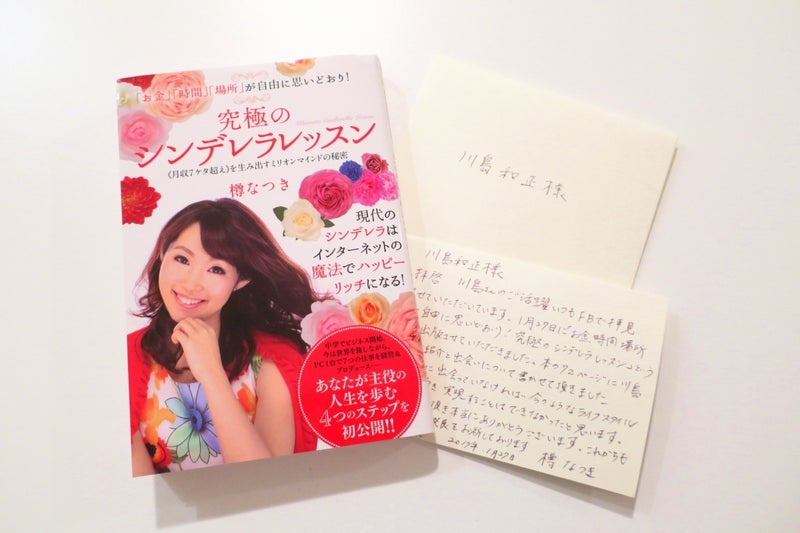 「お金」「時間」「場所」が自由に思いどおり!
究極の
シンデレラレッスン
《月収7ケタ超え》を生み出すミリオンマインドの秘密
樽なつき
現代の
シンデレラは
インターネットの
魔法でハッピー
リッチになる!
中学でビジネス開始、
今は世界を旅しながら、
PC1台で7つの仕事を経営&
プロデュース
あなたが主役の
人生を歩む
4つのステップを
初公開!!
川島和正様
川島和正様
拝啓 川島さんのご活躍いつもFBで拝見
せていただいています。1月27日にお金時間場所
自由に思いどおり!究極のシンデレラレッスンという
出版させていただきました。本の72ページに川島
と出会いについて書かせて頂きました
に出会っていなければ今のようなライフスタイル
実現することはできなかったと思います。
本当にありがとうございます。これからも
をお祈しております
2017年1月27日 樽なつき